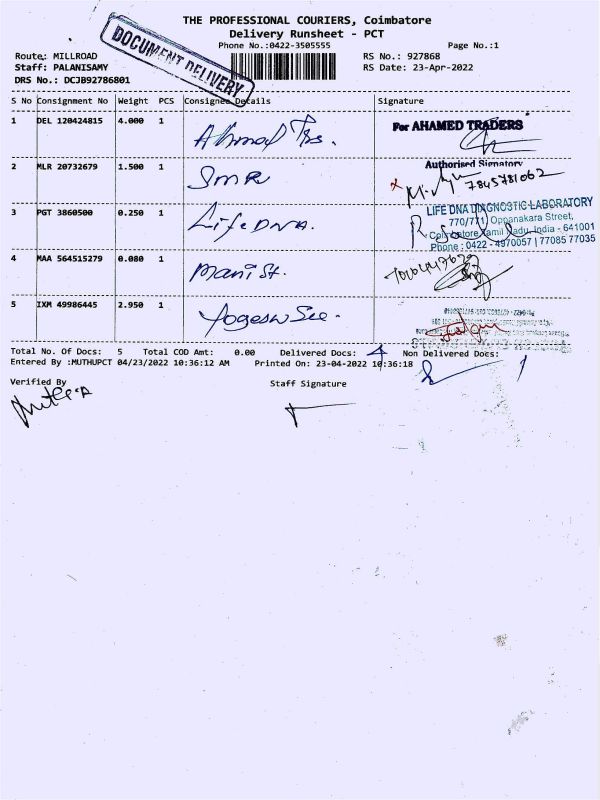 THE PROFESSIONAL COURIERS, Coimbatore
Delivery Runsheet - PCT
Phone No.:0422-3505555
Page No.:1
DOCUMENT DELIVERY
Route: MILLROAD
Staff: PALANISAMY
DRS No.: DCJB92786801
RS No.: 927868
RS Date: 23-Apr-2022
S No Consignment No Weight PCS Consignee Details Signature
1 DEL 120424815 4.000 1 Ahmad Trs.
For AHAMED TRADERS
Authorised Signatory
2 MLR 20732679 1.500 1 SMR
7845781062
3 PGT 3860500 0.250 1 Life DNA.
LIFE DNA DIAGNOSTIC LABORATORY
770/771, Oppanakara Street,
Coimbatore Tamil Nadu, India - 641001
Phone : 0422 - 4970057 | 77085 77035
4 MAA 564515279 0.080 1 Mani St.
5 IXM 49986445 2.950 1 Yogesw See.
Total No. Of Docs: 5 Total COD Amt: 0.00 Delivered Docs: 4 Non Delivered Docs: 1
Entered By :MUTHUPCT 04/23/2022 10:36:12 AM Printed On: 23-04-2022 10:36:18
Verified By Staff Signature